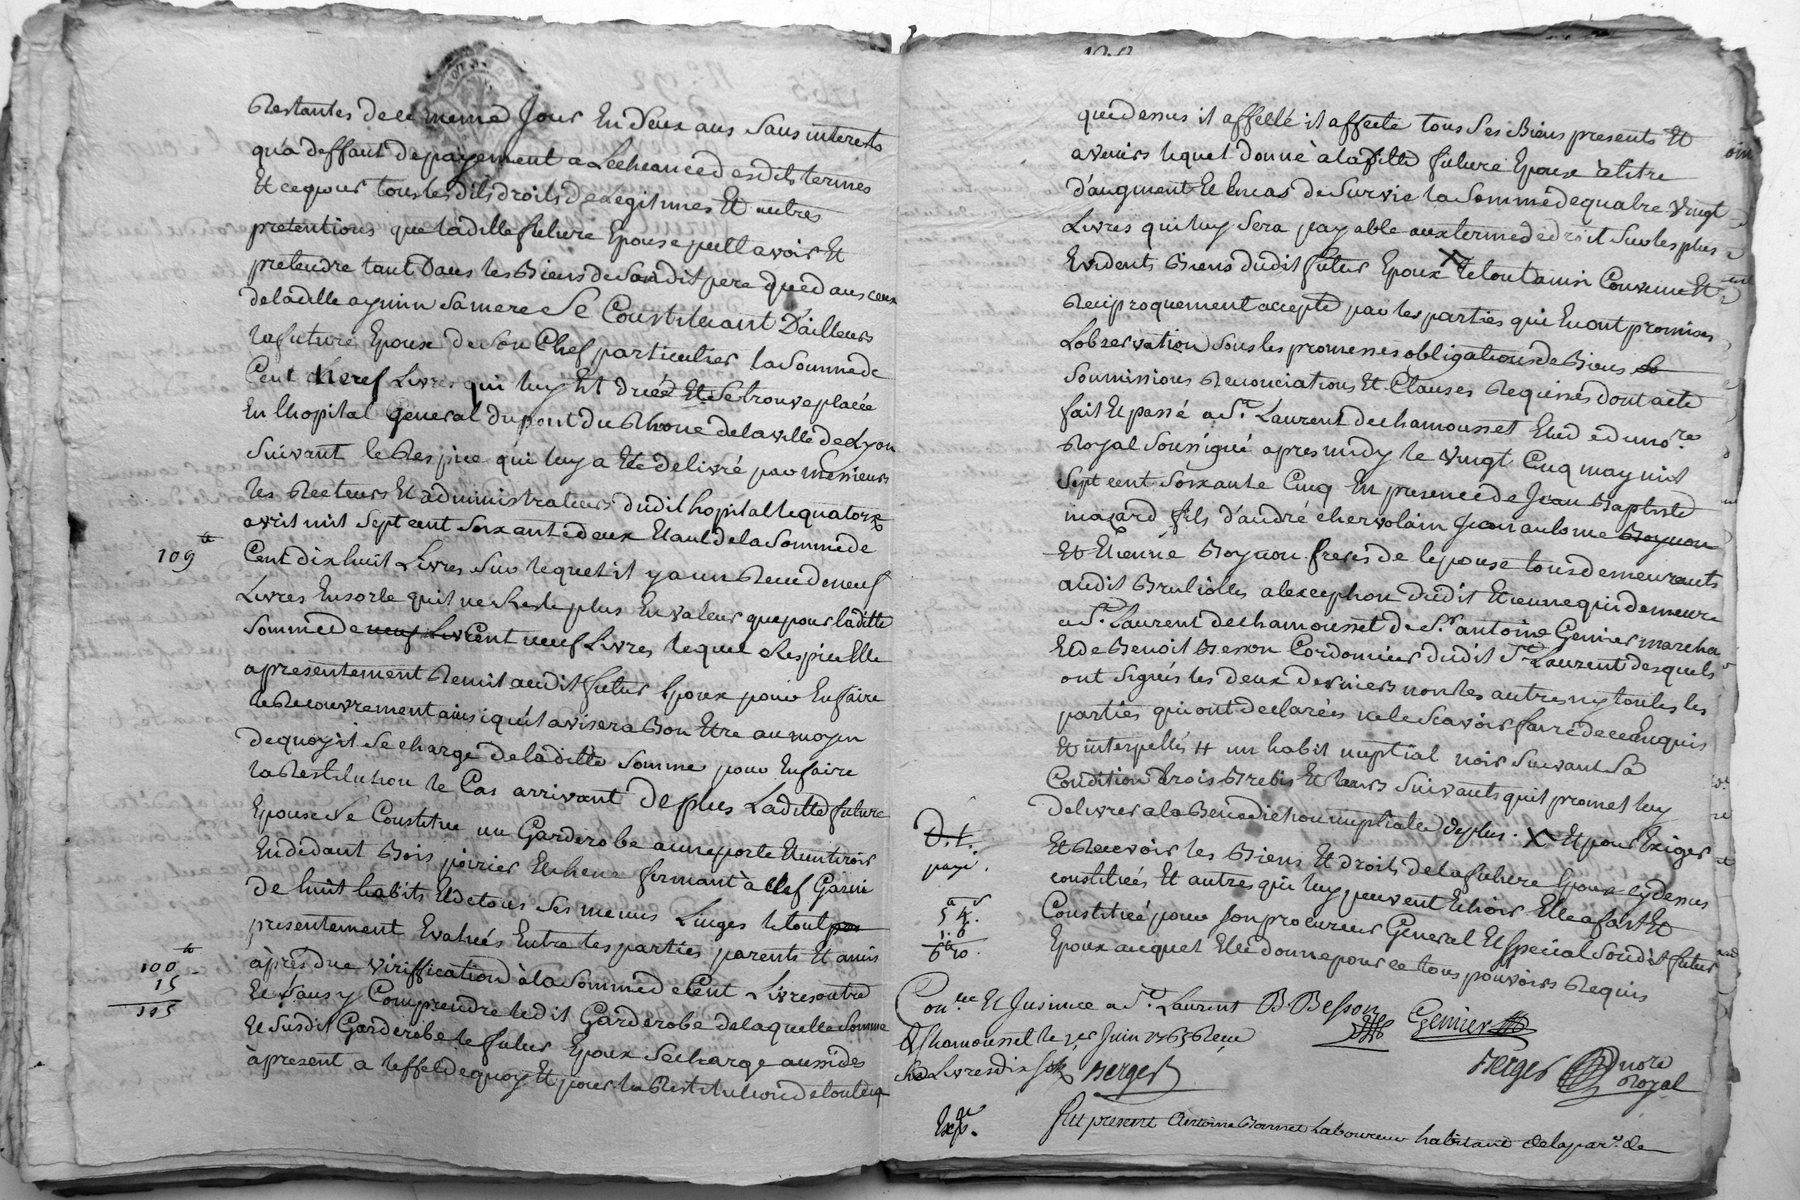 Restantes de ce meme Jour En deux ans sans interests
qu'a deffaut de payement a Lecheance desdits termes
Et ce pour tous lesdits droits de Legitimes Et autres
pretentions que laditte future Epouse peut avoir Et
pretendre tant Dans les Biens de Son dit pere que dans ceux
de laditte aymin sa mere Se Constituant D'ailleurs
la future Epouse de Son Chef particulier la Somme de
Cent Neuf Livres qui luy Est düeë Et Se trouve placée
En lhopital general du pont du Rhone de la ville de Lyon
Suivant le Respice qui luy a Eté delivré par messieurs
les Recteurs Et administrateurs dudit hopital le quatorze
avril mil Sept cent Soixante deux Etant de la Somme de
109 ₶
Cent dix huit Livres Sur lequel il y a un Recu de neuf
Livres En sorte quil ne Reste plus En valeur que pour laditte
Somme de neuf Livr Cent neuf Livres lequel Respice Elle
a presentement Remit audit futur Epoux pour En faire
le Recouvrement ainsi quil avisera Bon Etre au moyen
de quoy il Se charge de laditte Somme pour En faire
la Restitution le Cas arrivant De plus Laditte future
Epouse Se Constitue un Garderobe a une porte Et un tiroir
En dedant Bois poirier Et chene fermant à Clef Garni
de huit habits Et de tous Ses menus Linges le tout par
presentement Evalués Entre les parties parents Et amis
après due vériffication à la Somme de Cent Livres outre
100 ₶
15
115
Et Sans y Comprendre ledit Garderobe de laquelle Somme
Et Susdit Garderobe le futur Epoux Se charge aussi des
à present a leffet de quoy Et pour la Restitution de tout ce
que dessus il affellé il affecte tous Ses Biens present Et
avenirs lequel donne à laditte future Epouse à titre
d'augment Et En cas de Survie la Somme de quatre vingt
Livres qui luy Sera payable aux termes de droit Sur les plus
Evidents Biens dudit futur Epoux X le tout ainsi Convenu Et
Reciproquement accepté par les parties qui En ont promises
Lobservation Sous les promesses obligations de Biens
Soumissions Renonciations Et Clauses Requises dont acte
fait Et passé a St Laurent de chamousset Etude du nore
Royal Soussigné apres midy le vingt Cinq may mil
Sept cent Soixante Cinq En presence de Jean Baptiste
mazard fils d'andré Jean antoine Boynon
Et Etienne Boynon freres de lepouse tous demeurants
audit Brulioles a lexception dudit Etienne qui demeure
a St Laurent de chamousset de Sr antoine Genier marcha
Et de Benoit Besson Cordonnier dudit St Laurent desquels
ont Signés les deux derniers non les autres ny toutes les
parties qui ont declarées ne le Scavoir faire de ce Enquis
Et interpellés # un habit nuptial noir Suivant Sa
Condition trois Brebis Et leurs Suivants quil promet luy
delivrer a la Benediction nuptiale De plus. X Et pour Exiger
D. t.
payé.
Et Recevoir les Biens Et droits de la future Epouse cy dessus
constitués Et autres qui luy peuvent Echoir Elle a fait Et
Constitué pour Son procureur General Et Special Son dit futur
Epoux auquel Elle donne pour ce tous pouvoirs Requis
Con.lle Et Insinué a St Laurent
Chamousset le 1er Juin 1765 Recu
Six Livres dix sols Berger
B. Besson
Genier
Berger nore Royal
Exp.
Fut present Antoine Bonnet Laboureur habitant de la par. de